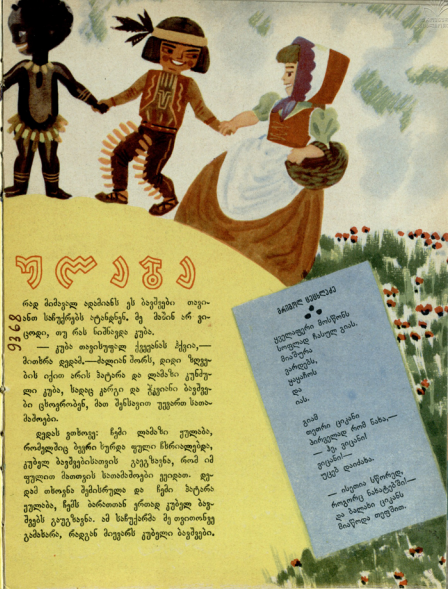 ყულაბა
რად მიმავალ ადამიანს ეს ბავშვები თავი-
ანთ საჩუქრებს ატანდნენ. მე მაშინ არ ვი-
ცოდი, თუ რას ნიშნავდა კუბა.
— კუბა თავისუფალ ქვეყანას ჰქვია,—
მითხრა დედამ,—ძალიან შორს, დიდი ზღვე-
ბის იქით არის პატარა და ლამაზი კუნძუ-
ლი კუბა, სადაც კარგი და ჭკვიანი ბავშვე-
ბი ცხოვრობენ, მათ შენსავით უყვართ სათა-
მაშოები.
დედას ვთხოვე: ჩემი ლამაზი ყულაბა,
რომელშიც ბევრი ხურდა ფული ჩხრიალებდა,
კუბელ ბავშვებისათვის გაეგზავნა, რომ იმ
ფულით მათთვის სათამაშოები ეყიდათ. დე-
დამ თხოვნა შემისრულა და ჩემი პატარა
ყულაბა, ჩემს ბარათთან ერთად კუბელ ბავ-
შვებს გაუგზავნა. ამ საჩუქარმა მე თვითონვე
გამახარა, რადგან მიყვარს კუბელი ბავშვები.
9368
გრიგოლ
ყველაფერი მოსწონს
სოფლად ჩასულ გიას.
მიაშურა
ვარდებს,
ყაყაჩოს
და
იას.
გიამ
თეთრი ციკანი
პირველად რომ ნახა,—
— ჰე, ვიცანი!
ვიცანი!—
უცებ დაიძახა.
— ისეთია სწორედ,
როგორც ნახატებში!—
და ბალახი ციკანს
მიაწოდა თეფშით.